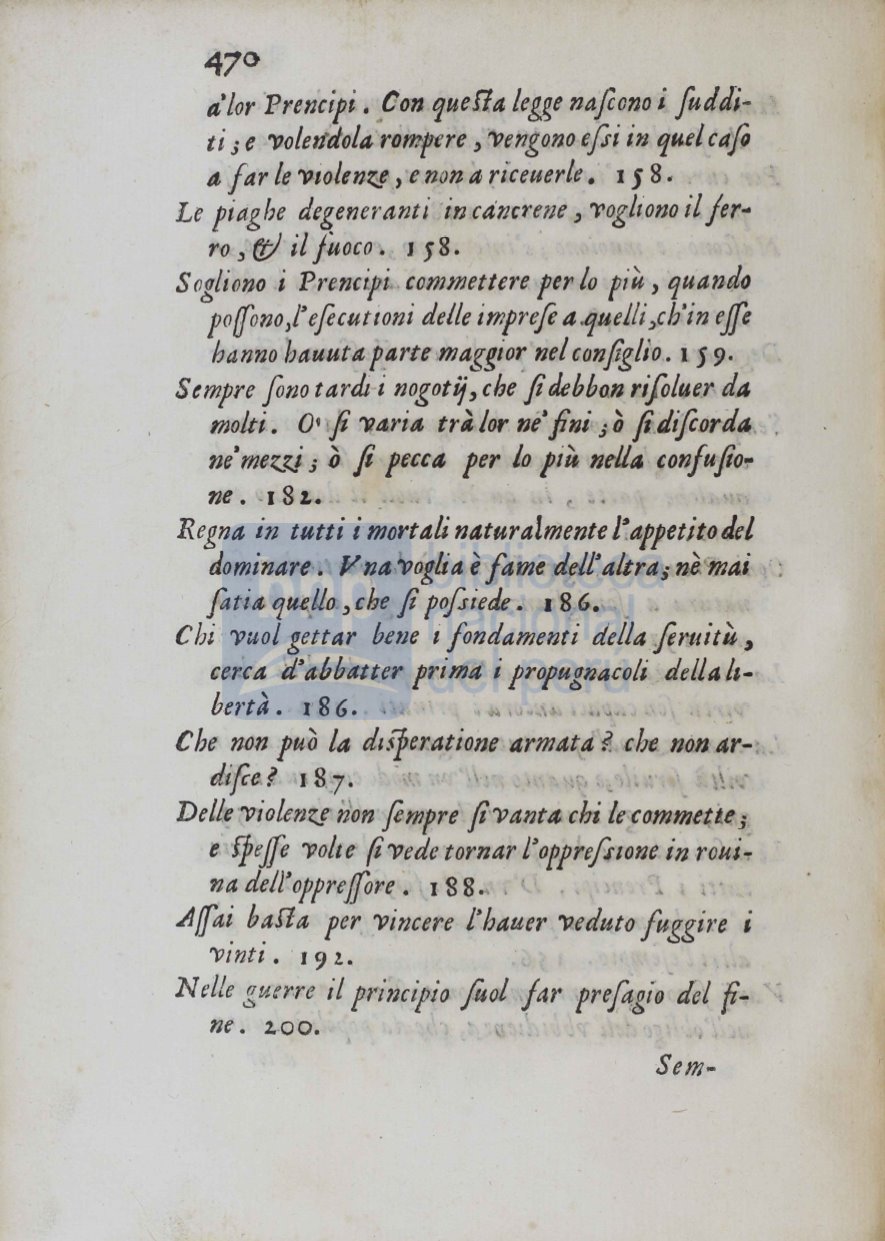 470
a'lor Prencipi. Con questa legge nascono i suddi-
ti; e volendola rompere, vengono essi in quel caso
a far le violenze, e non a riceuerle. 158.
Le piaghe degeneranti in cancrene, vogliono il fer-
ro, & il fuoco. 158.
Sogliono i Prencipi commettere per lo più, quando
possono, l'esecutioni delle imprese a quelli, ch'in esse
hanno hauuta parte maggior nel consiglio. 159.
Sempre sono tardi i nogotij, che si debbon risoluer da
molti. O' si varia trà lor ne' fini; ò si discorda
ne' mezzi; ò si pecca per lo più nella confusio-
ne. 182.
Regna in tutti i mortali naturalmente l'appetito del
dominare. Vna voglia è fame dell'altra; nè mai
satia quello, che si possiede. 186.
Chi vuol gettar bene i fondamenti della seruitù,
cerca d'abbatter prima i propugnacoli della li-
bertà. 186.
Che non può la disperatione armata? che non ar-
disce? 187.
Delle violenze non sempre si vanta chi le commette;
e spesse volte si vede tornar l'oppressione in roui-
na dell'oppressore. 188.
Assai basta per vincere l'hauer veduto fuggire i
vinti. 192.
Nelle guerre il principio suol far presagio del fi-
ne. 200.
Sem-